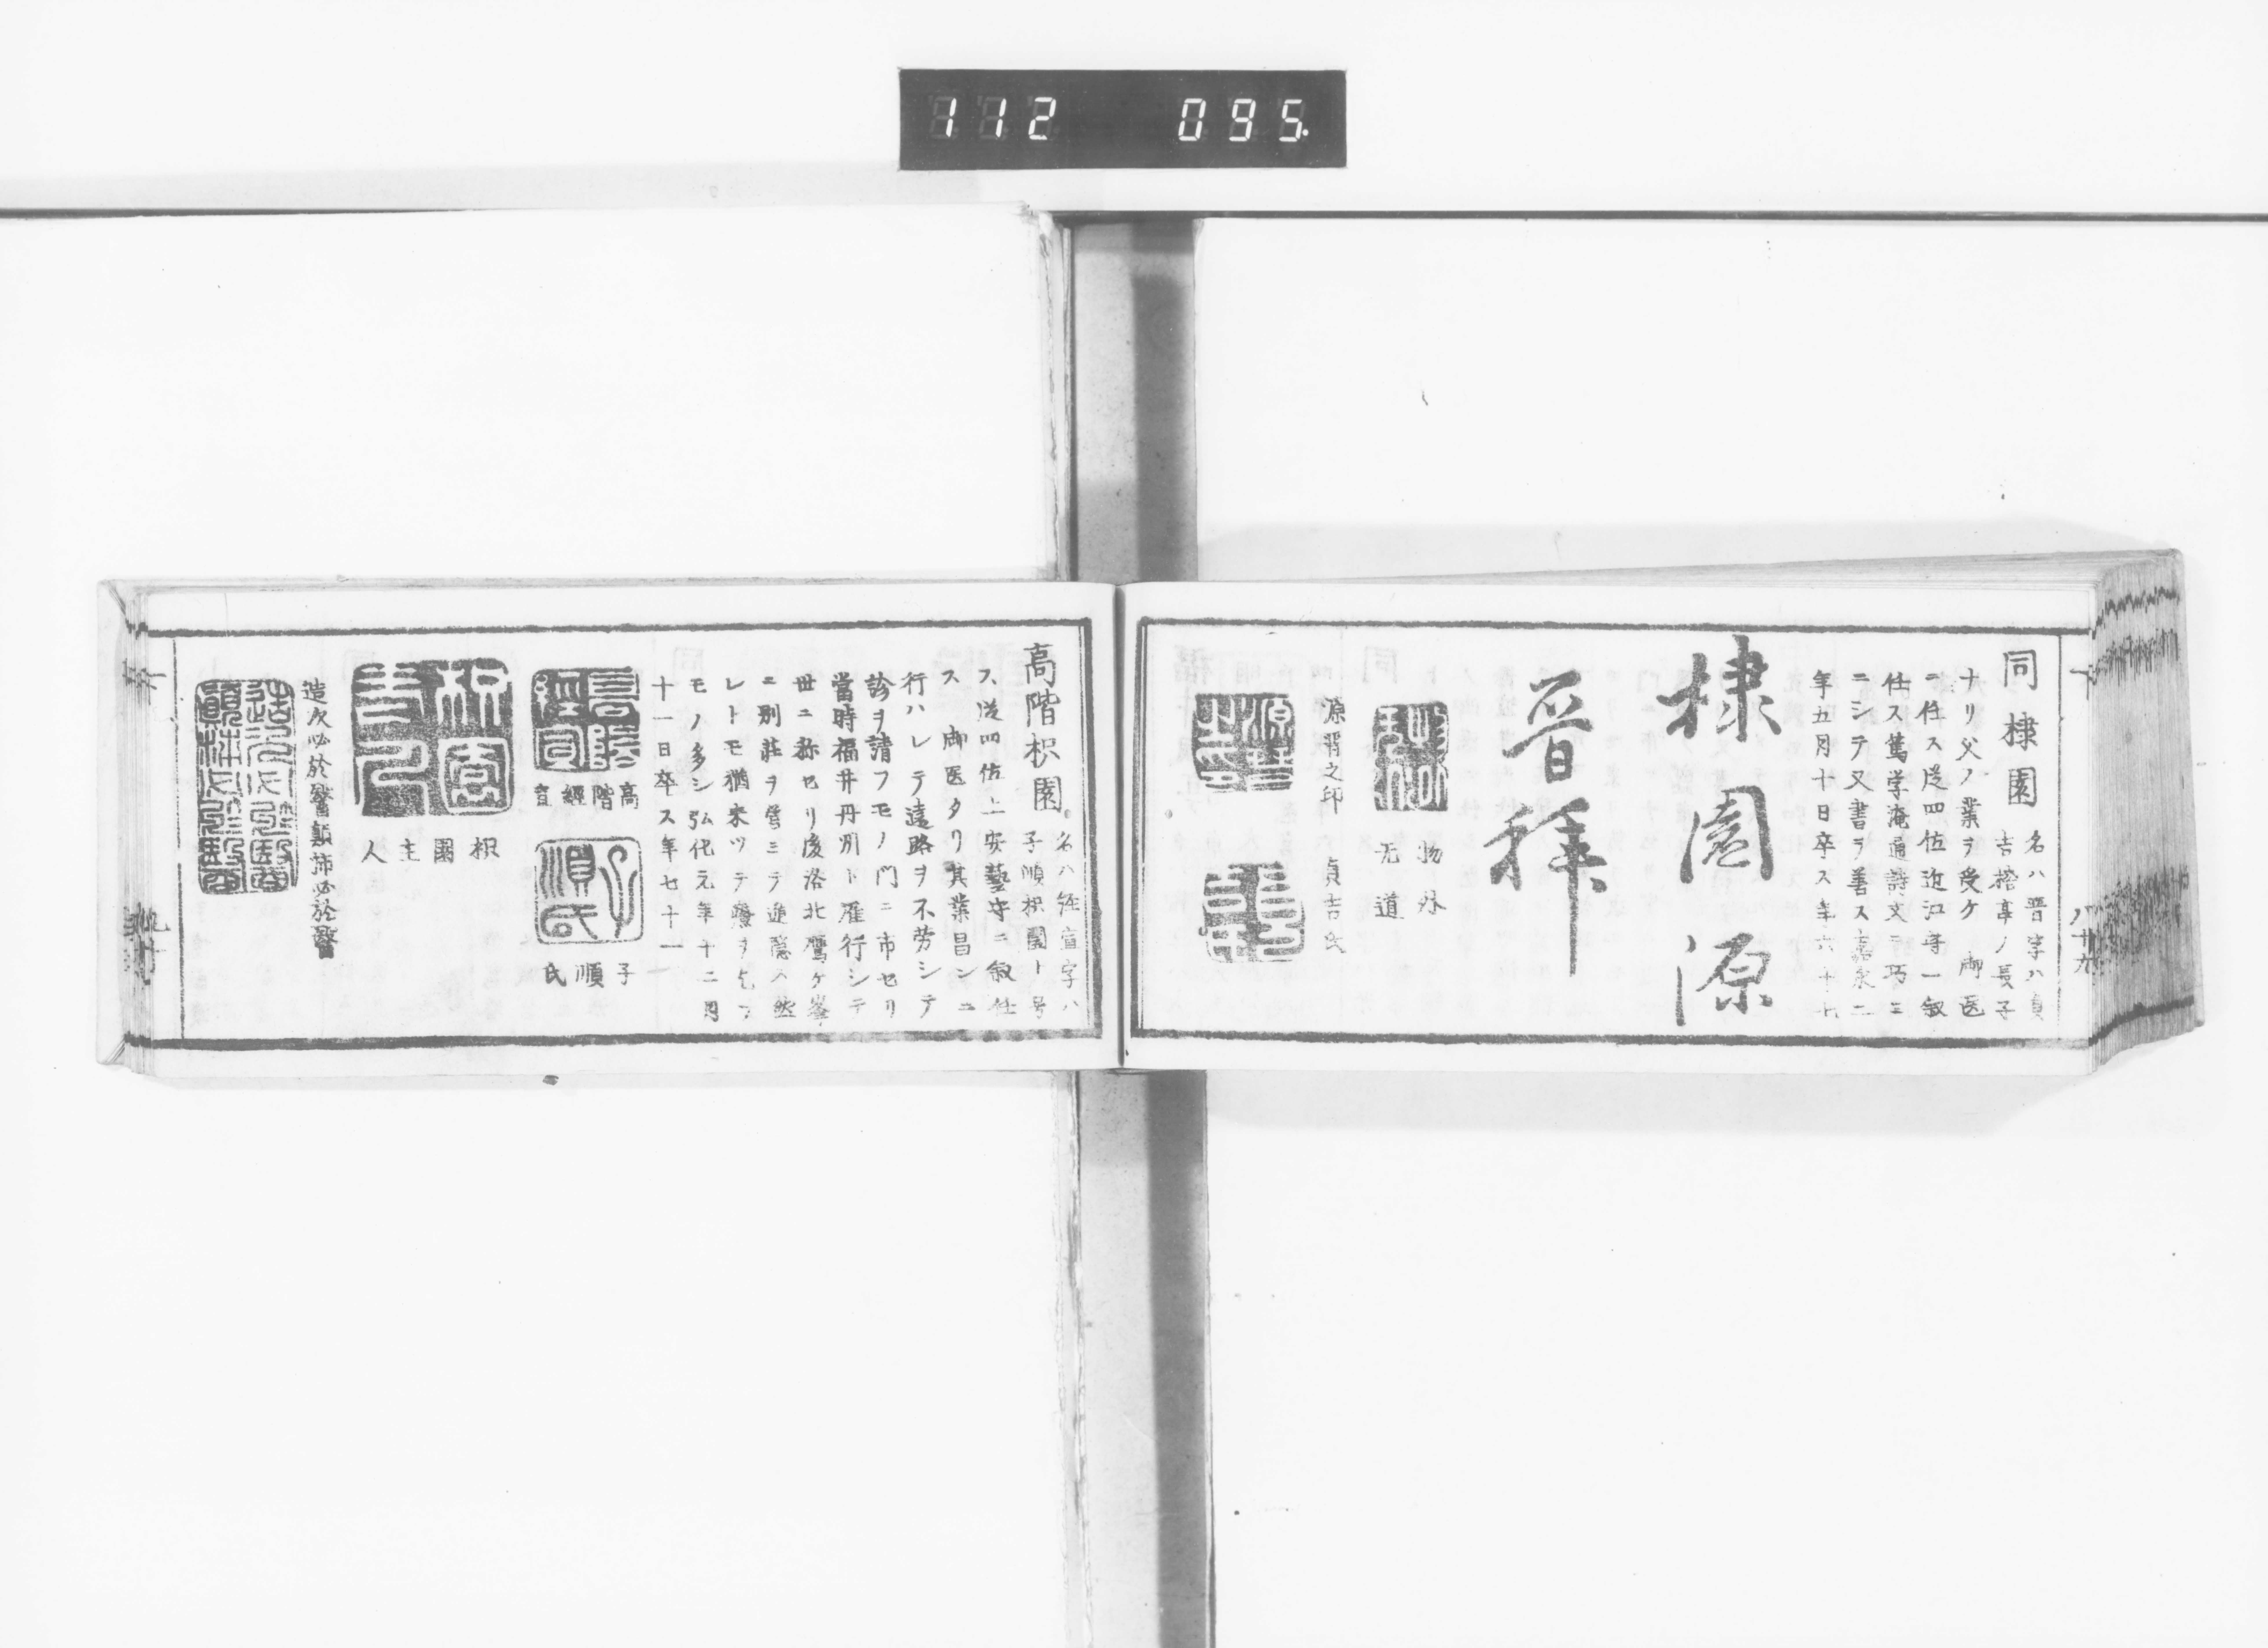 112 095.
同棣園
名ハ晋字ハ貞
吉榕亭ノ長子
ナリ父ノ業ヲ受ケ 御医
ニ任ス従四位近江守ニ叙
仕ス篤学淹通詩文ニ巧ミ
ニシテ又書ヲ善ス嘉永二
年五月十日卒ス年六十七
棣園源
晋拜
物外
无道
源晋之印
貞吉氏
八十六
高階枳園
名ハ経宣字ハ
子順枳園ト号
ス従四位上安藝守ニ叙仕
ス 御医タリ其業昌ンニ
行ハレテ遠路ヲ不労シテ
診ヲ請フモノ門ニ市セリ
當時福井丹州ト雁行シテ
世ニ称セリ後洛北鷹ケ峯
ニ別荘ヲ営ミテ遁隠ス然
レトモ猶来ツテ療ヲ乞フ
モノ多シ弘化元年十二月
十一日卒ス年七十一
高階經宣
子順氏
枳園主人
造次必於醫顛沛必於醫